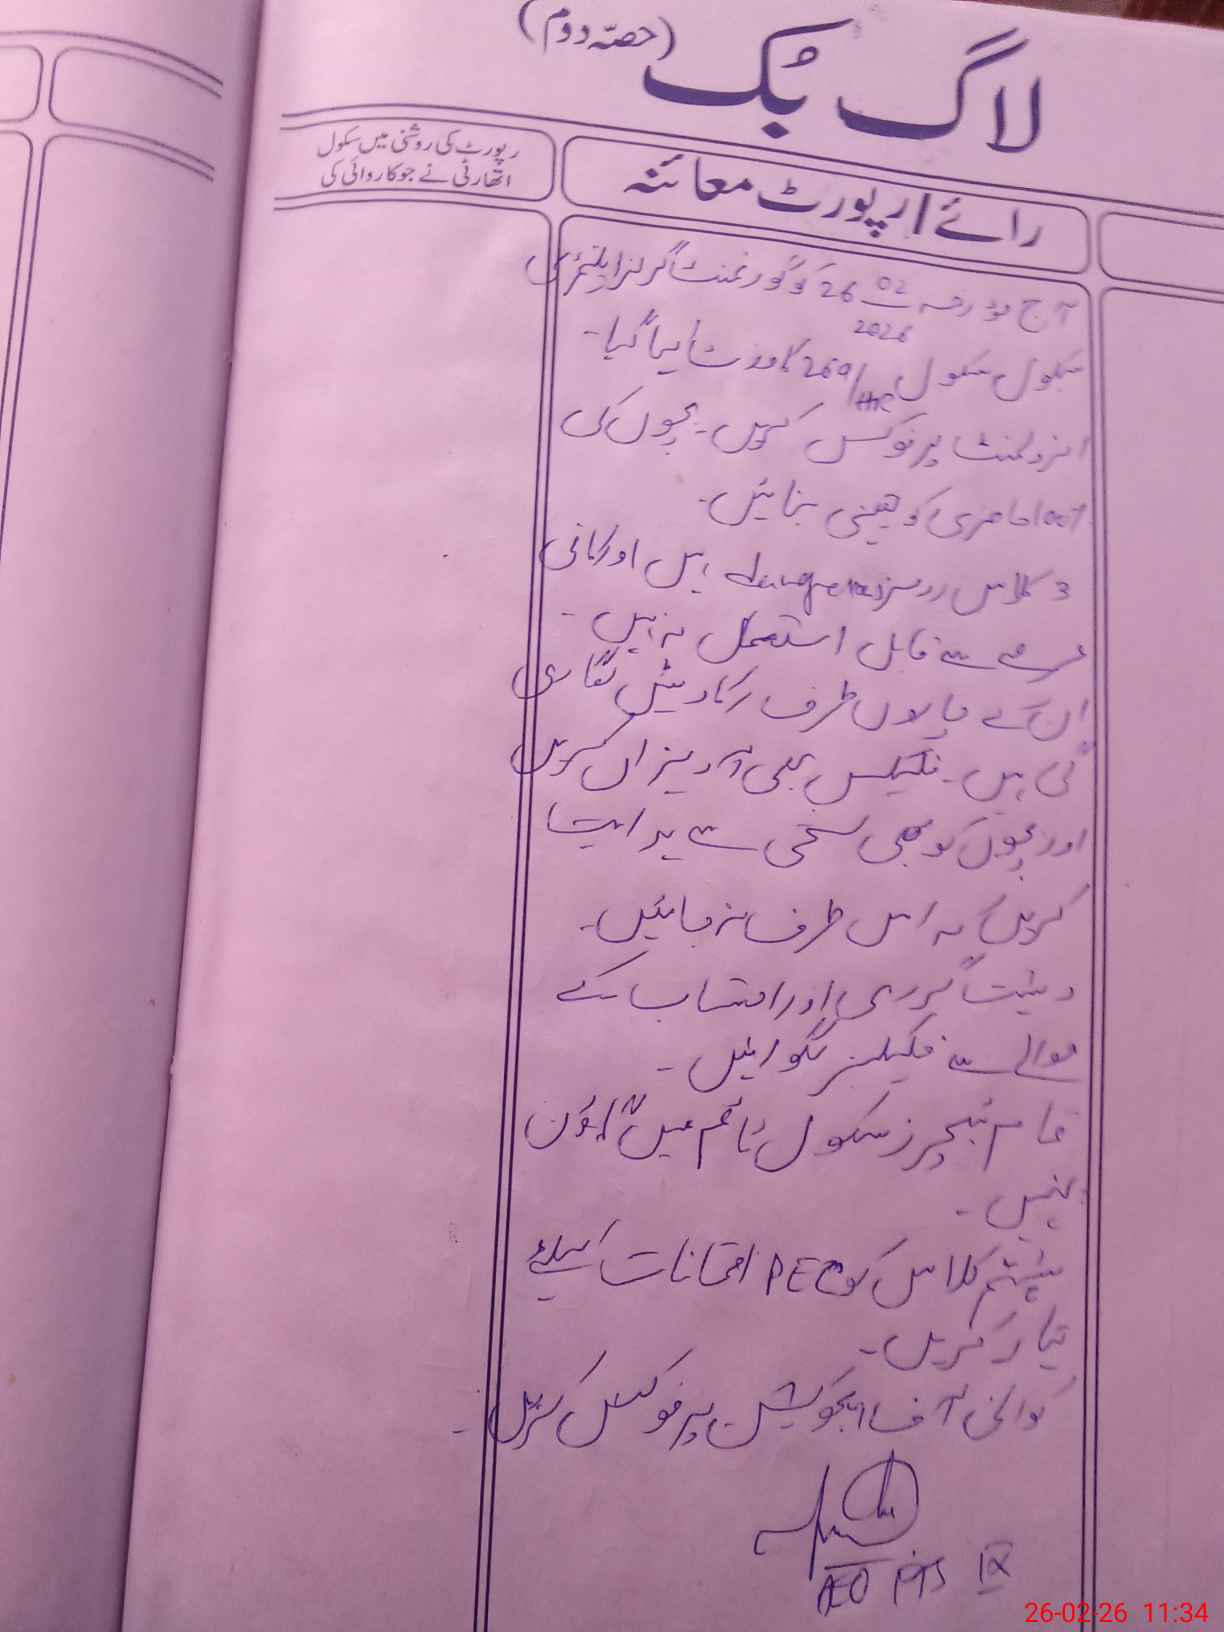 لاگ بک (حصّہ دوم)
رائے / رپورٹ معائنہ
رپورٹ کی روشنی میں سکول
اتھارٹی نے جو کاروائی کی
آج مورخہ 26 02 2026 کو گورنمنٹ گرلز ایلیمنٹری
سکول سکول 269/HR کا وزٹ کیا گیا۔
انرولمنٹ پر فوکس کریں۔ بچوں کی
100% حاضری کو یقینی بنائیں۔
3 کلاس رومز dangerous ہیں اور کافی
عرصے سے قابل استعمال نہ ہیں۔
ان کے چاروں طرف رکاوٹیں لگا دی
گئی ہیں۔ فلیکس بھی آویزاں کریں
اور بچوں کو بھی سختی سے ہدایت
کریں کہ اس طرف نہ جائیں۔
دہشت گردی اور
حوالے سے فلیکسز لگوائیں۔
تمام ٹیچرز سکول ٹائم میں گاؤن
پہنیں۔
ہشتم کلاس کو PEC امتحانات کیلئے
تیار کریں۔
کوالٹی آف ایجوکیشن پر فوکس کریں۔
AEO
26-02-26 11:34